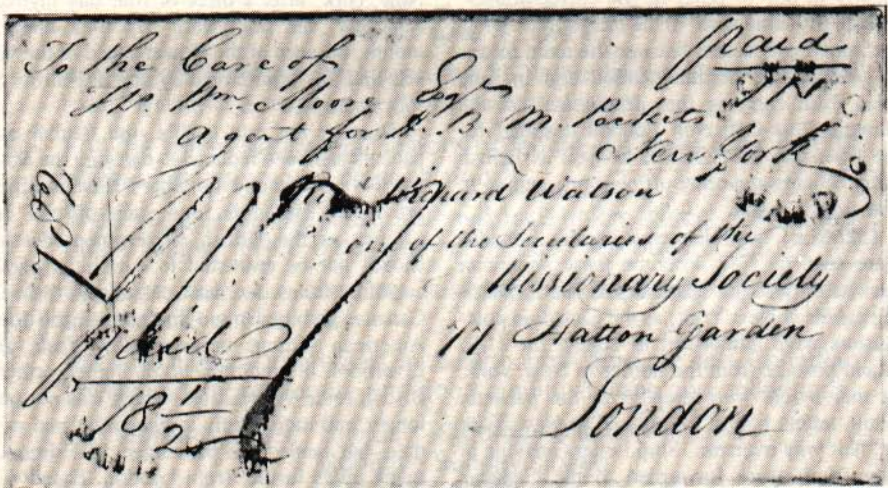 To the Care of
Thos. Wm. Moore Esqr
Agent for H. B. M. Packets
New York
paid
Richard Watson
one of the Secretaries of the
Missionary Society
77 Hatton Garden
London
paid
18 1/2